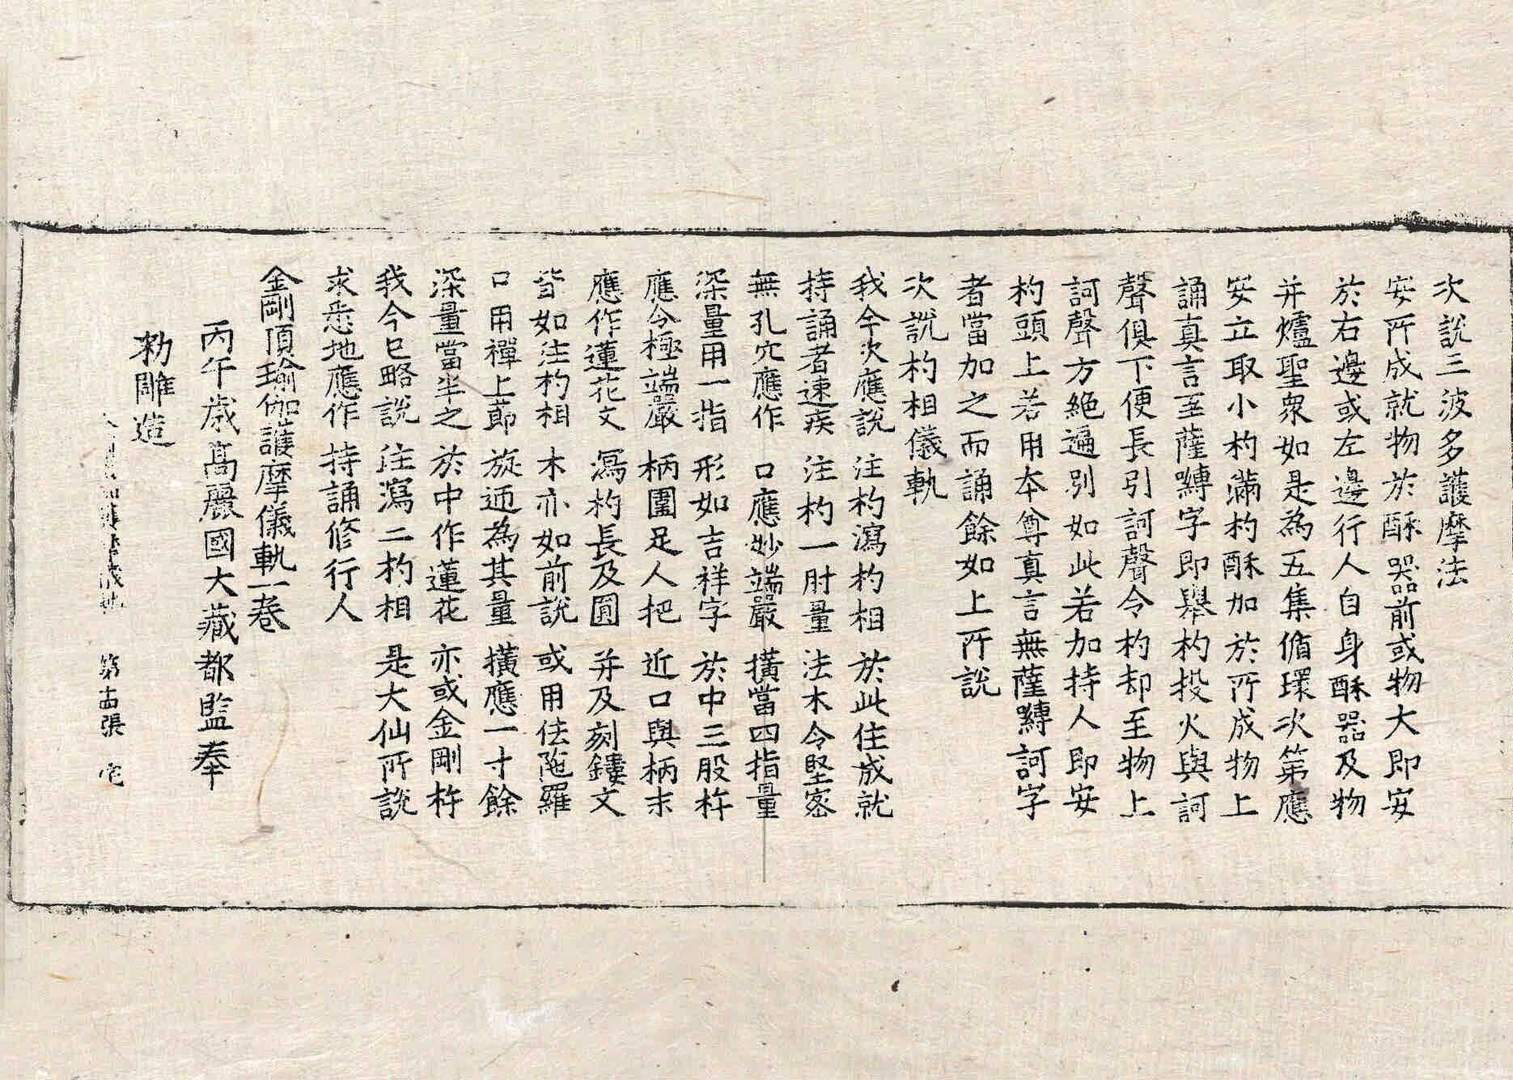 次說三波多護摩法
安所成就物於酥器前或物大即安
於右邊或左邊行人自身酥器及物
并爐聖衆如是為五集循環次第應
安立取小杓滿杓酥加於所成物上
誦真言至薩嚩字即舉杓投火與訶
聲俱下便長引訶聲令杓却至物上
訶聲方絕遍別如此若加持人即安
杓頭上若用本尊真言無薩嚩訶字
者當加之而誦餘如上所說
次說杓相儀軌
我今次應說 注杓瀉杓相 於此住成就
持誦者速疾 注杓一肘量 法木令堅密
無孔穴應作 口應妙端嚴 橫當四指量
深量用一指 形如吉祥字 於中三股杵
應令極端嚴 柄圍足人把 近口與柄末
應作蓮花文 瀉杓長及圓 并及刻鏤文
皆如注杓相 木亦如前說 或用佉陁羅
口用禪上莭 旋迊為其量 橫應一寸餘
深量當半之 於中作蓮花 亦或金剛杵
我今已略說 注瀉二杓相 是大仙所說
求悉地應作 持誦修行人
金剛頂瑜伽護摩儀軌一卷
丙午歲高麗國大藏都監奉
勑雕造
第十四張 宅